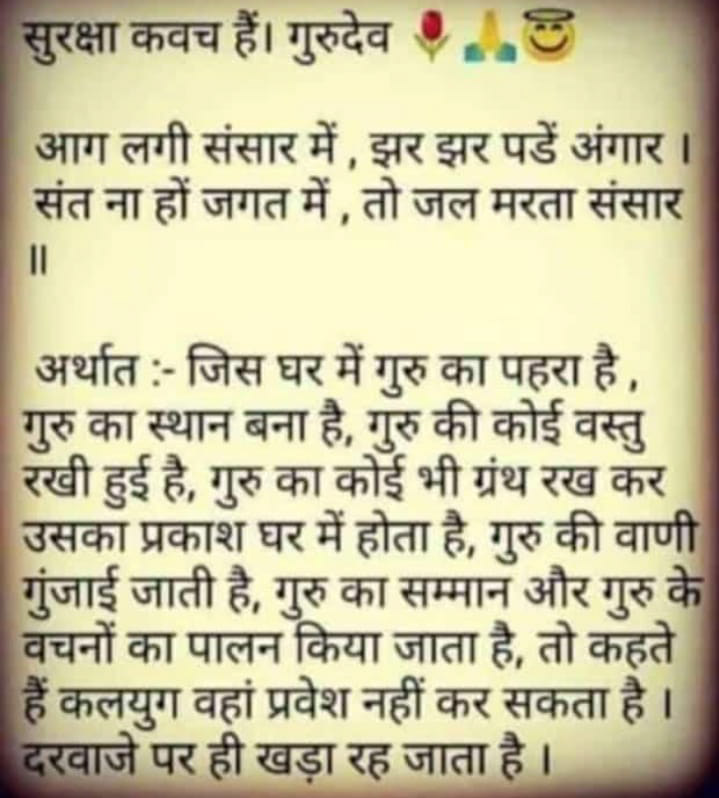 सुरक्षा कवच हैं। गुरुदेव 🌷🙏😇
आग लगी संसार में , झर झर पडें अंगार ।
संत ना हों जगत में , तो जल मरता संसार
॥
अर्थात :- जिस घर में गुरु का पहरा है ,
गुरु का स्थान बना है, गुरु की कोई वस्तु
रखी हुई है, गुरु का कोई भी ग्रंथ रख कर
उसका प्रकाश घर में होता है, गुरु की वाणी
गुंजाई जाती है, गुरु का सम्मान और गुरु के
वचनों का पालन किया जाता है, तो कहते
हैं कलयुग वहां प्रवेश नहीं कर सकता है ।
दरवाजे पर ही खड़ा रह जाता है ।